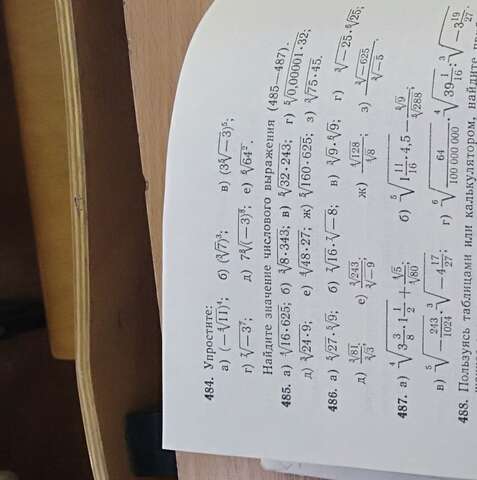 484. Упростите:
а) (−⁴√11)⁴; б) (³√7)³; в) (3⁵√−3)⁵;
г) ⁷√−3⁷; д) 7⁸√(−3)⁸; е) ⁶√64².
Найдите значение числового выражения (485—487).
485. а) ⁴√16·625; б) ³√8·343; в) ⁵√32·243; г) ⁵√0,00001·32;
д) ³√24·9; е) ⁴√48·27; ж) ⁵√160·625; з) ³√75·45.
486. а) ⁵√27·⁵√9; б) ⁷√16·⁷√−8; в) ³√9·³√9; г) ³√−25·⁶√25;
д) ³√81/³√3; е) ³√243/³√−9; ж) ⁴√128/⁴√8; з) ³√−625/³√−5.
487. а) ⁴√3 3/8·1 1/2 + ⁴√5/⁴√80; б) ⁵√1 11/16·4,5 − ⁵√9/⁵√288;
в) ⁵√−243/1024·³√−4 17/27; г) ⁶√64/100 000 000·⁴√39 1/16:³√−3 19/27.
488. Пользуясь таблицами или калькулятором, найдите